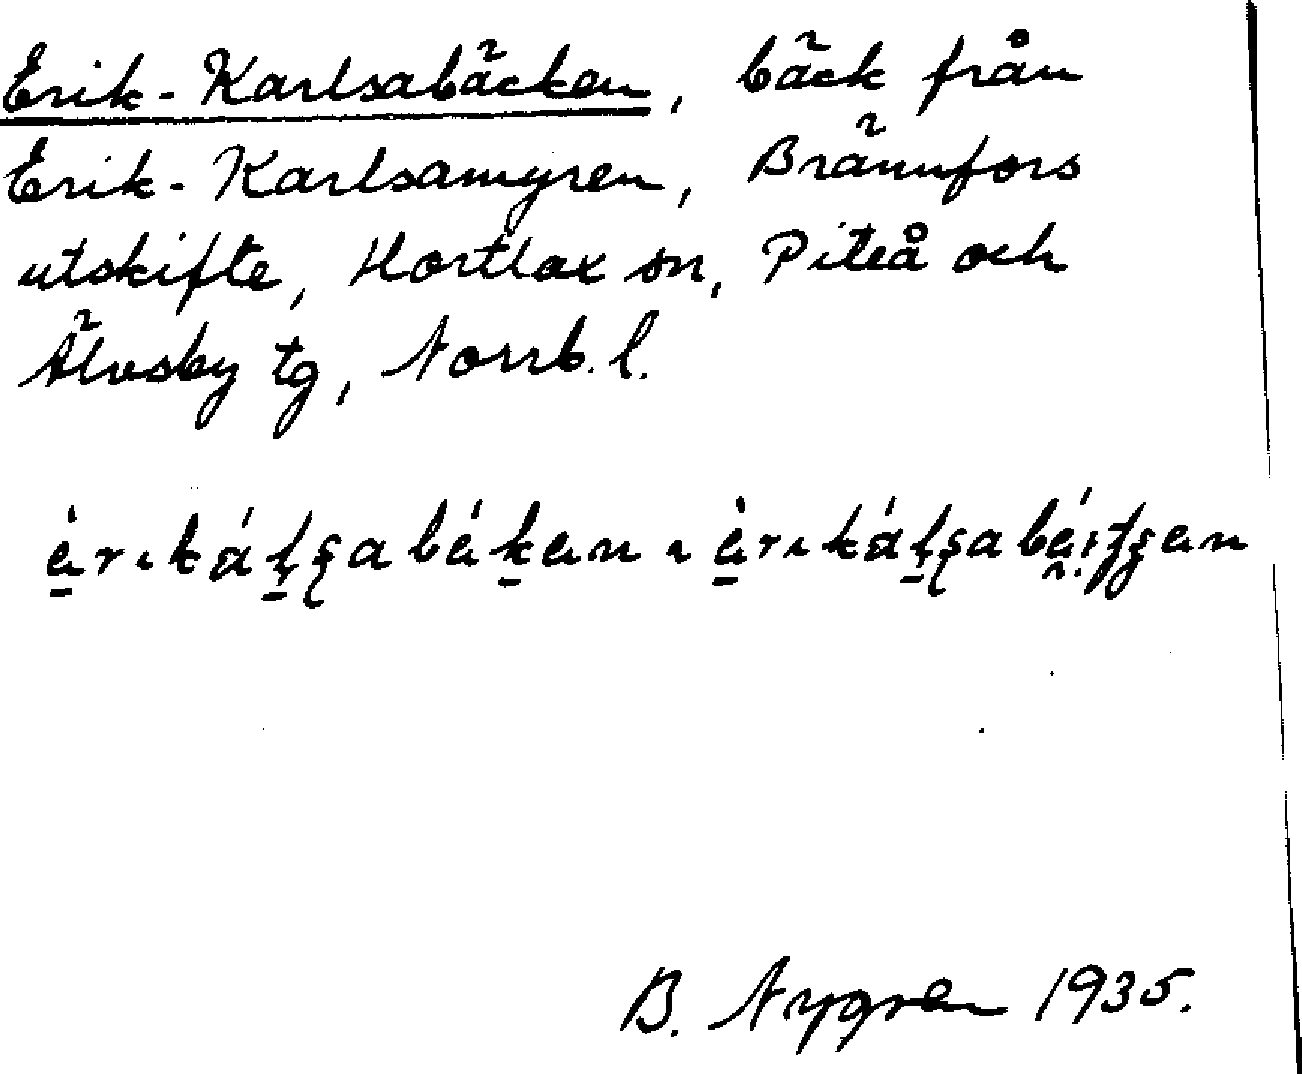 Erik-Karlsabäcken, bäck från
Erik-Karlsamyren, Brännfors
utskifte, Hortlax sn, Piteå och
Älvsby tg, Norrb. l.
B. Nygren 1935.